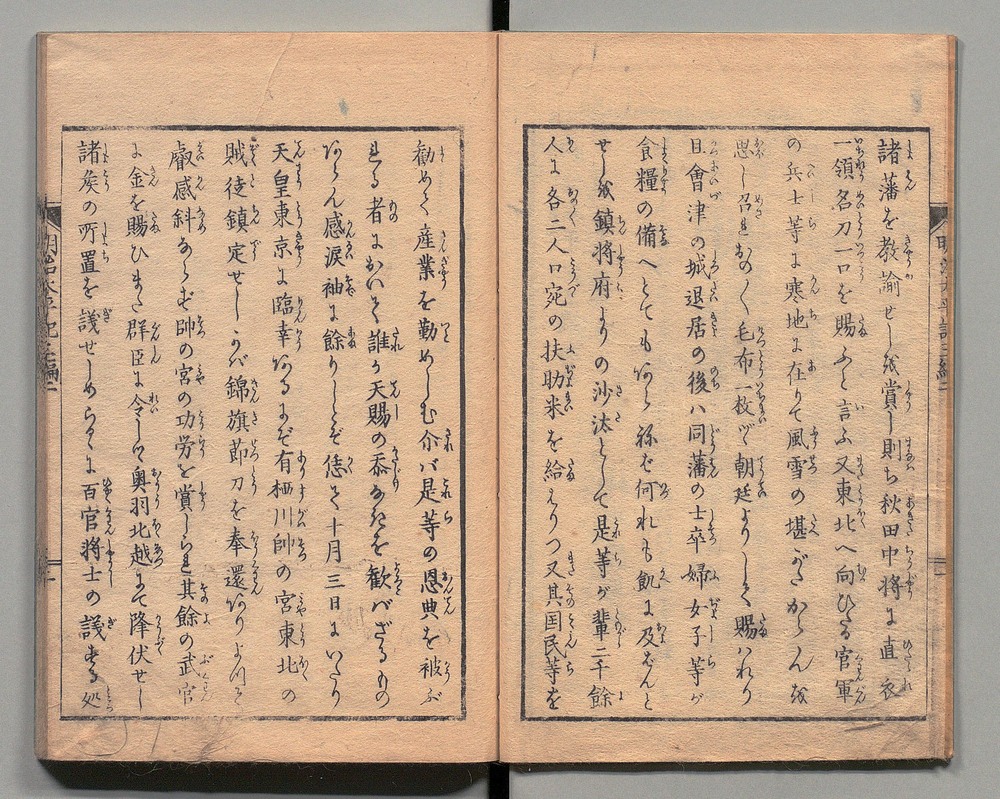 諸藩を教諭せしを賞し則ち秋田中将に直衣
一領名刀一口を賜ふと言ふ又東北へ向ひたる官軍
の兵士等に寒地に在りて風雪の堪がたからんを
思し召れおの〱毛布一枚ヅヽ朝廷よりして賜はれり
且會津の城退居の後ハ同藩の士卒婦女子等が
食糧の備へとてもあらねば何れも飢に及ばんと
せしを鎮将府よりの沙汰として是等が輩二千餘
人に各二人口宛の扶助米を給えりつ又其国民等を
勧めて産業を勤めしむ介バ是等の恩典を被ぶ
れる者において誰か天賜の忝なきを歓バざるもの
あらん感涙袖に餘りしとぞ偖て十月三日にいたり
天皇東京に臨幸あるにぞ有栖川帥の宮東北の
賊徒鎮定せしかバ錦旗節刀を奉還ありよりて
叡感斜ならず帥の宮の功労を賞しられ其餘の武官
に金を賜ひまた群臣に令して奥羽北越にて降伏せし
諸矦の所置を議せしめらるゝに百官将士の議する処